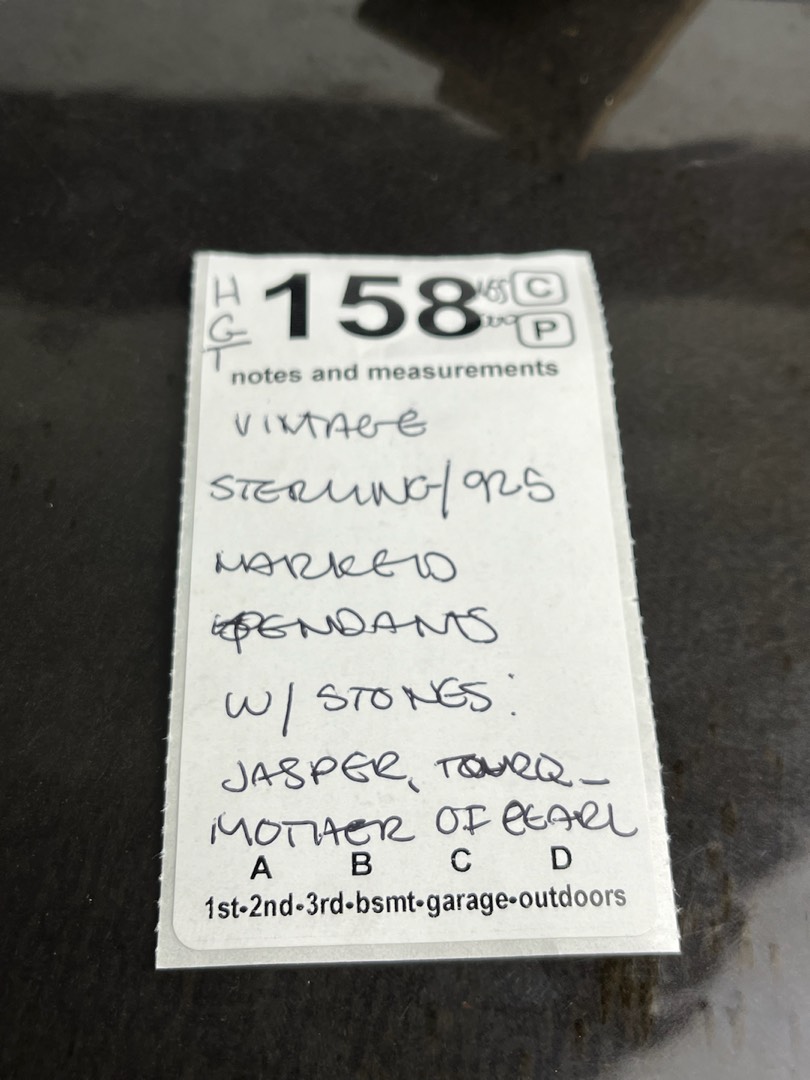 H 158 C
G P
T
notes and measurements
VINTAGE
STERLING/925
MARKED
PENDANTS
W/ STONES:
JASPER, TOURQ-
MOTHER OF PEARL
A B C D
1st-2nd-3rd-bsmt-garage-outdoors